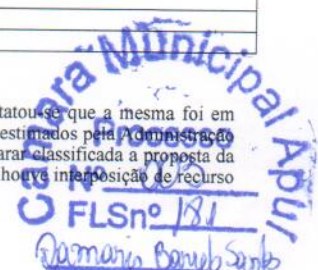 tatou-se que a mesma foi em
estimados pela Administração
arar classificada a proposta da
houve interposição de recurso
Câmara Municipal Apuí
Processo
Nº 003
FLSnº 181
Damaris Santos